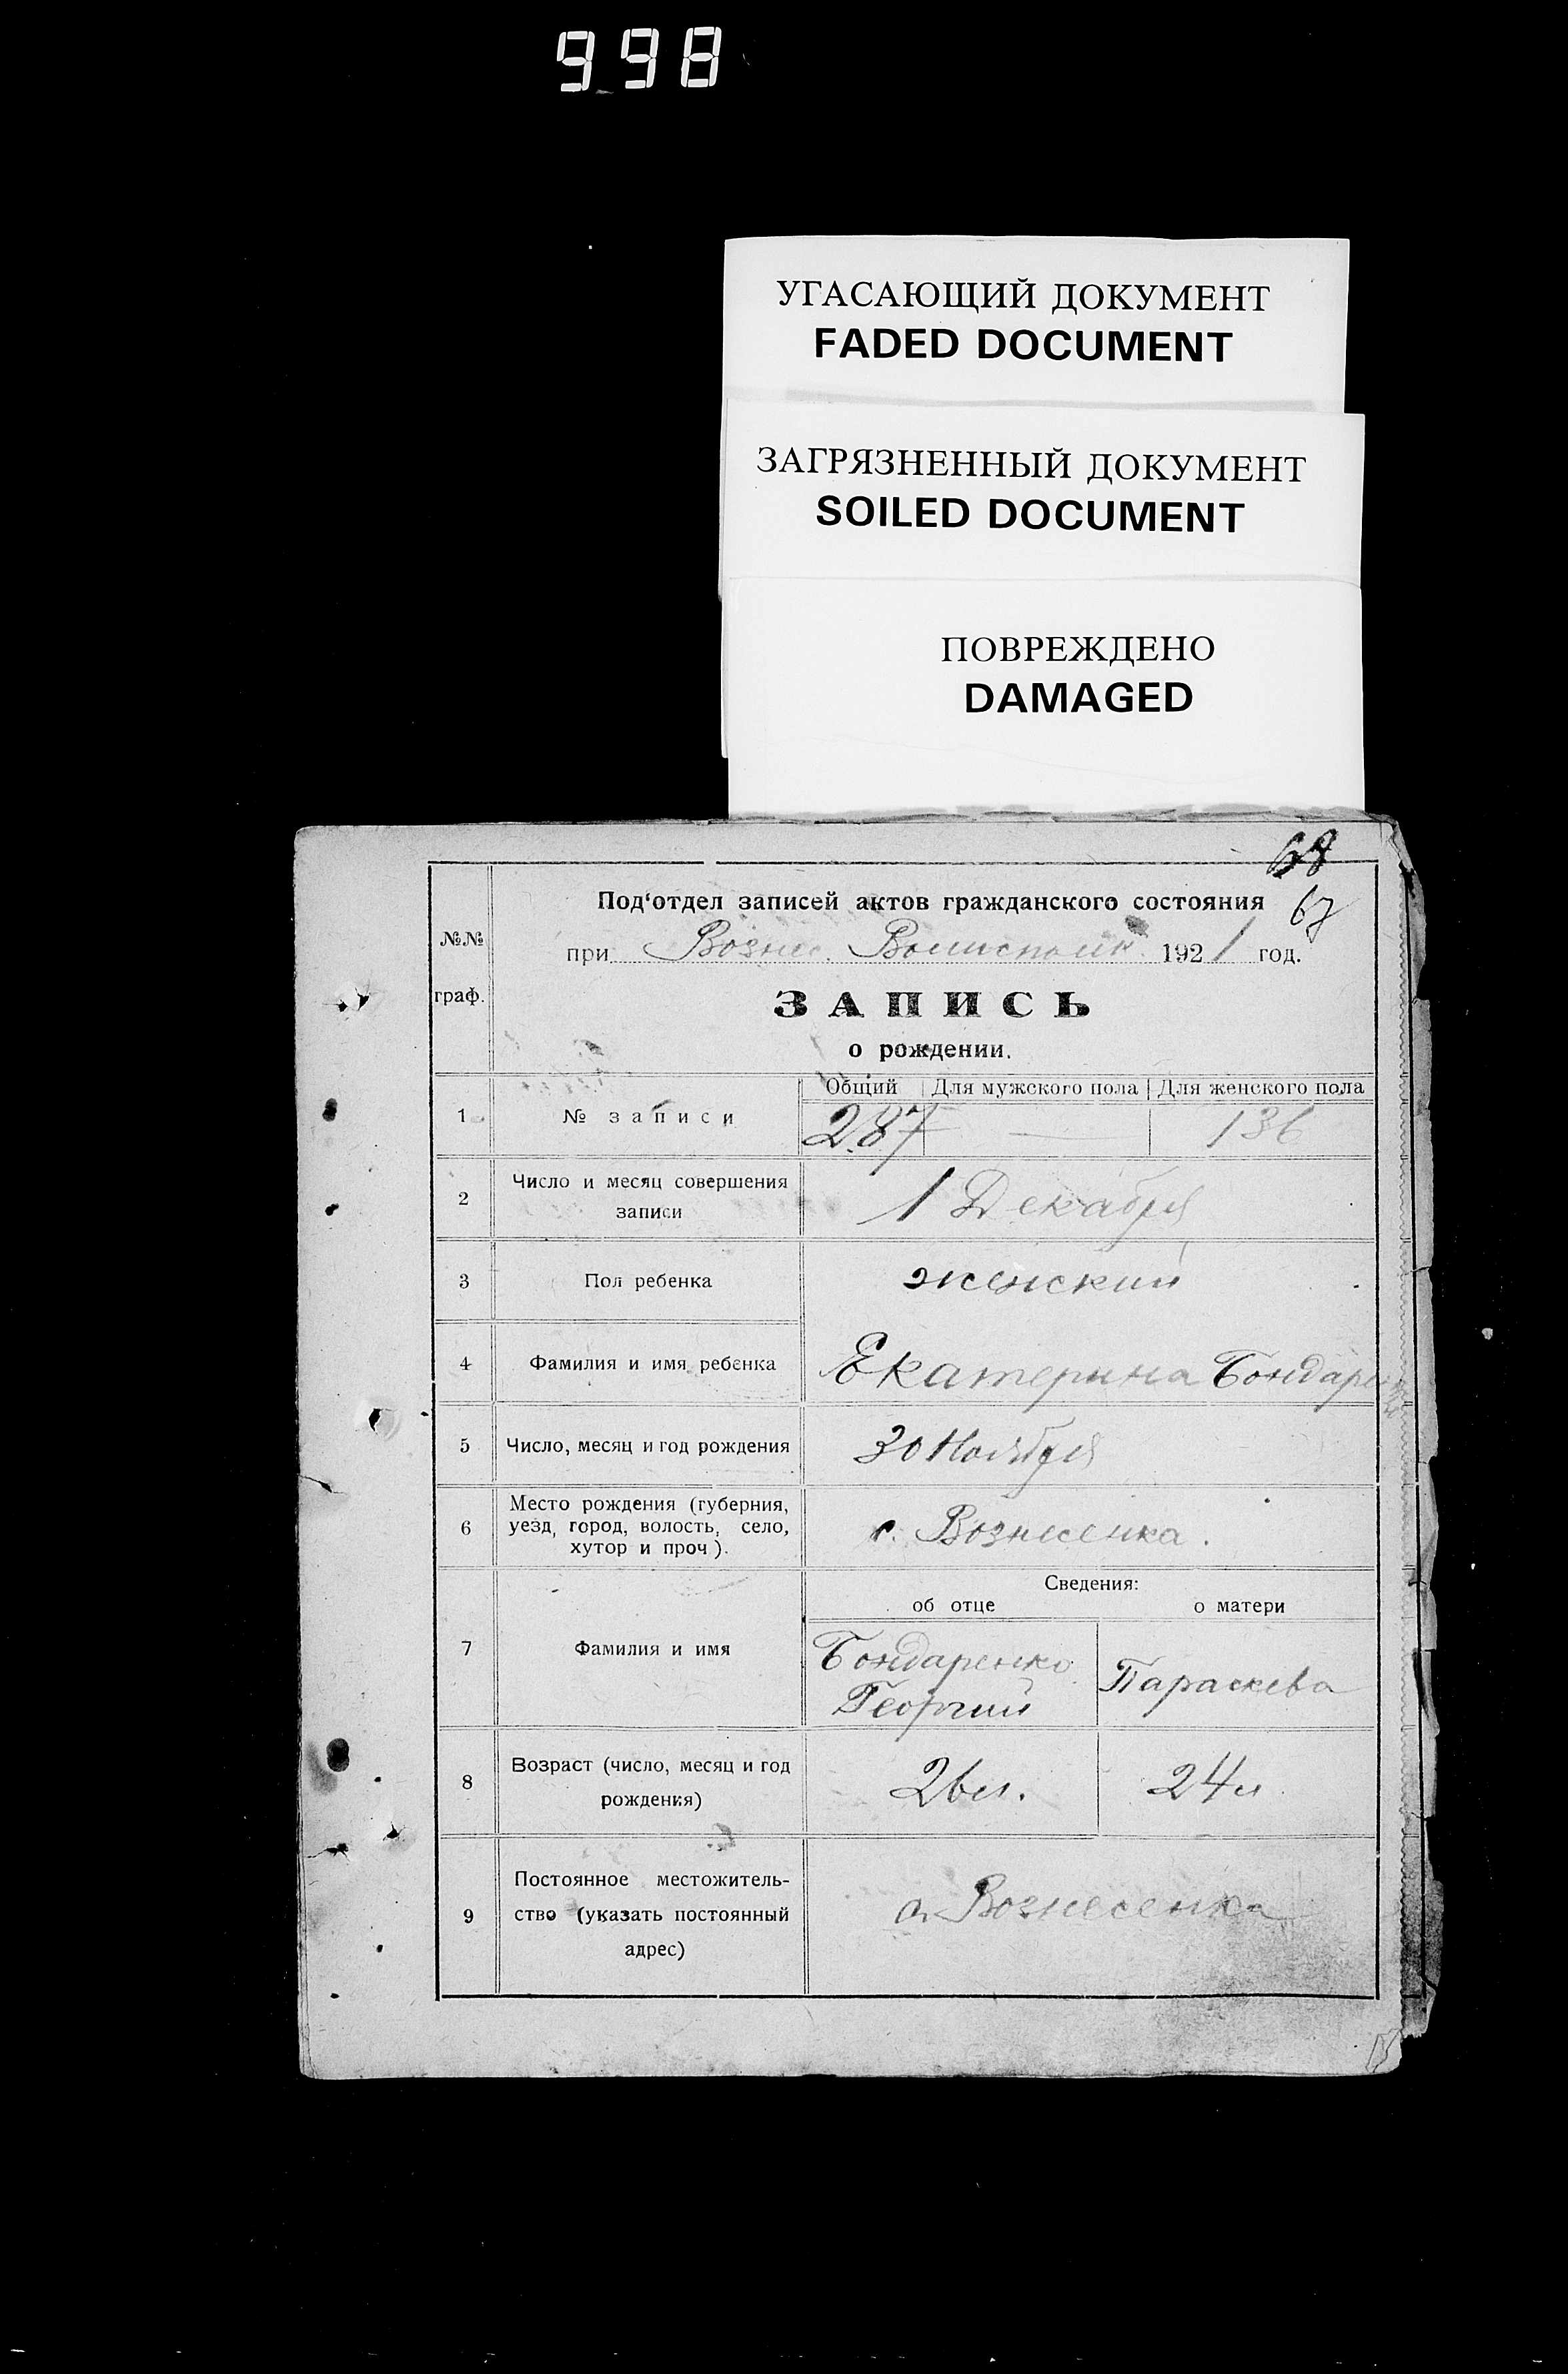 998
УГАСАЮЩИЙ ДОКУМЕНТ
FADED DOCUMENT
ЗАГРЯЗНЕННЫЙ ДОКУМЕНТ
SOILED DOCUMENT
ПОВРЕЖДЕНО
DAMAGED
68
67
№№
граф.
Под‘отдел записей актов гражданского состояния
при Вознес. 1921 год.
ЗАПИСЬ
о рождении.
Общий Для мужского пола Для женского пола
1 № записи 287 — 136
2 Число и месяц совершения
записи
1 Декабря
3 Пол ребенка женский
4 Фамилия и имя ребенка Екатерина Бондаренко
5 Число, месяц и год рождения 30 Ноября
6 Место рождения (губерния,
уезд, город, волость, село,
хутор и проч).
с. Вознесенка.
Сведения:
об отце о матери
7 Фамилия и имя
Бондаренко
Георгий
Параскева
8 Возраст (число, месяц и год
рождения)
26 л. 24 л
9 Постоянное местожитель-
ство (указать постоянный
адрес)
с. Вознесенка